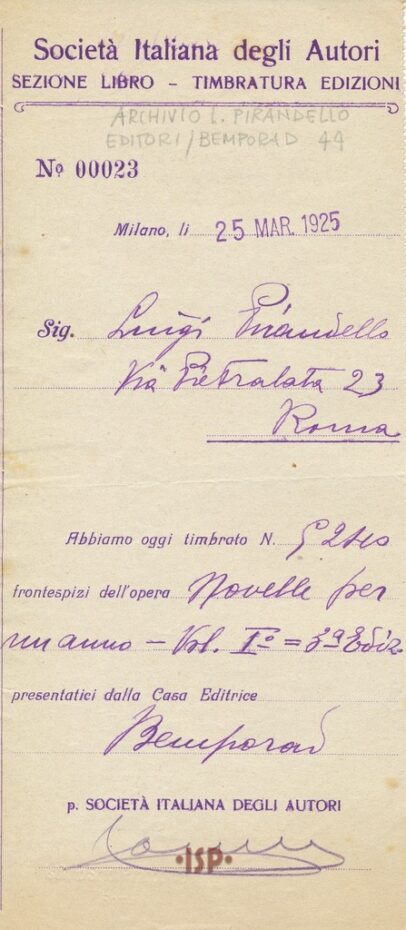 Società Italiana degli Autori
SEZIONE LIBRO – TIMBRATURA EDIZIONI
ARCHIVIO L. PIRANDELLO
EDITORI/BEMPORAD 44
Nº 00023
Milano, li 25 MAR. 1925
Sig. Luigi Pirandello
Via Pietralata 23
Roma
Abbiamo oggi timbrato N.
frontespizi dell'opera Novelle per
un anno – Vol. Iº = 3ª Ediz
presentatici dalla Casa Editrice
Bemporad
p. SOCIETÀ ITALIANA DEGLI AUTORI
·ISP·